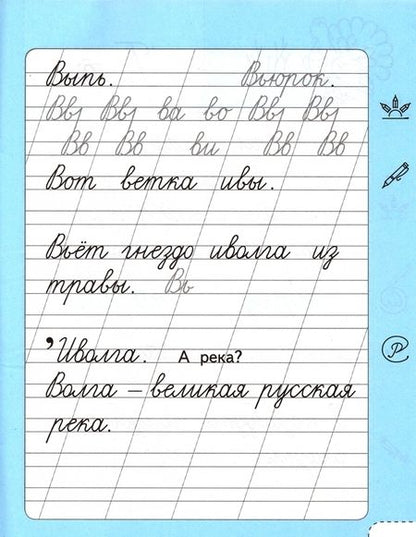 Выпь. Вьюрок.
Ввз Ввз ва во Ввз Ввз
Вв Вв ви Вв Вв
Вот ветка ивы.
Вьёт гнездо иволга из
травы. Вь
’Иволга. А река?
Волга – великая русская
река.